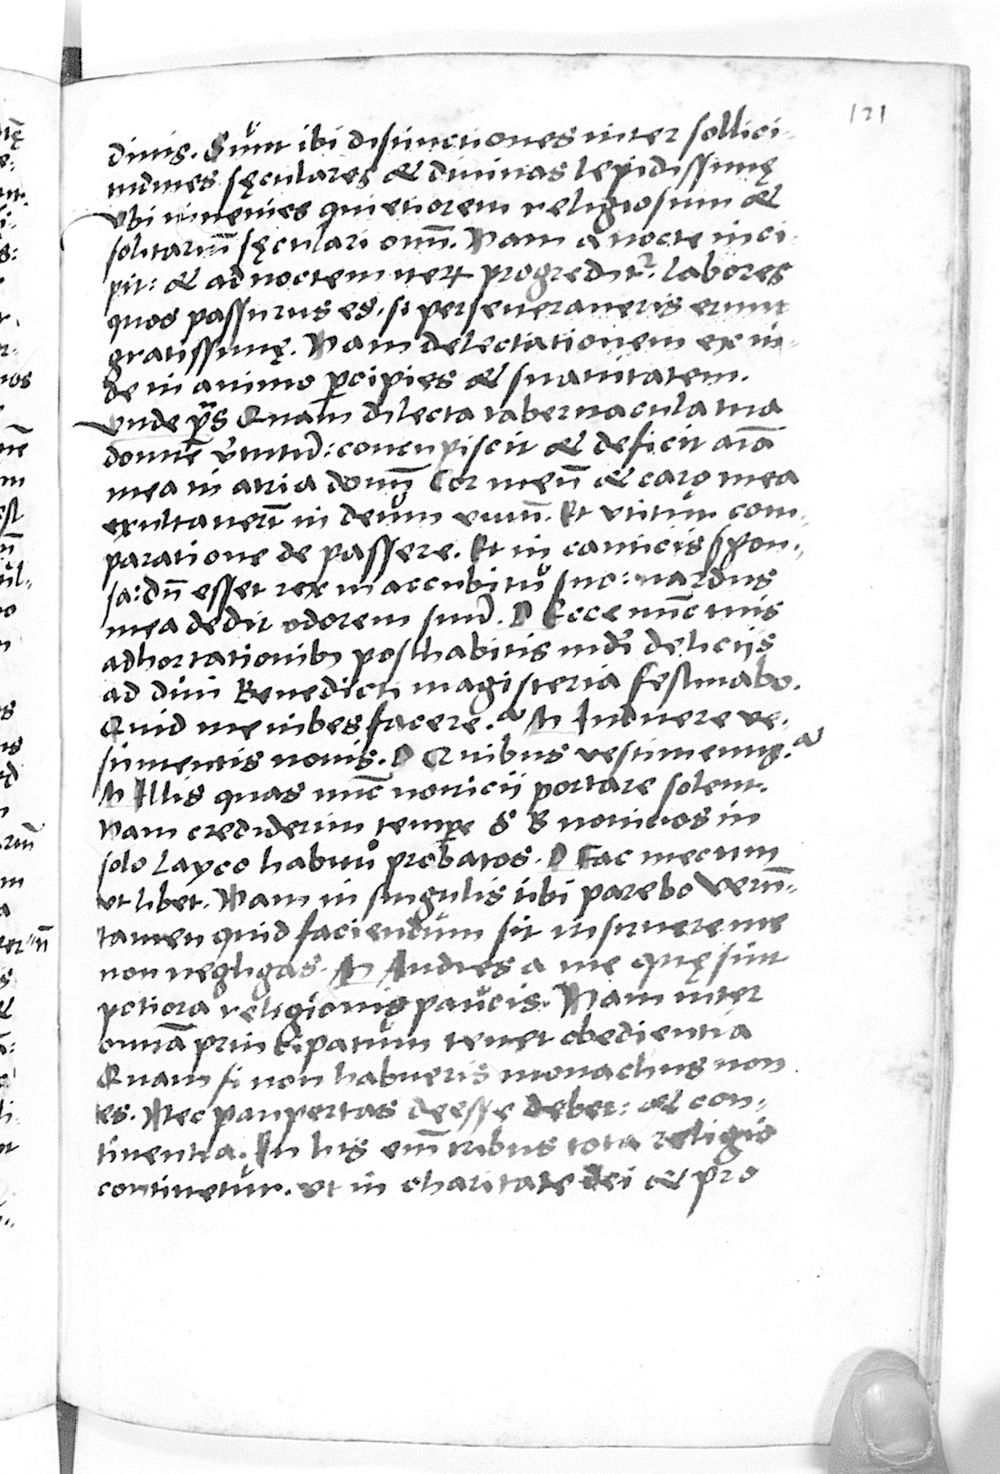 121
dinis. Sunt ibi distinctiones inter sollici-
tudines sęculares & diuinas lepidissimę
Vbi inuenies quietiorem religiosum &
solitariū sęculari omī. Nam a nocte inci-
pit: & ad noctem progreditr. labores
quos passurus es. si perseueraueris erunt
gratissimę. Nam delectationem ex in-
de in animo pcipies & suauitatem.
Vnde ps Quam dilecta tabernacula tua
domine: concupiscit & deficit aīa
mea in atria Cor meū & caro mea
exultauerūt in deum viuū. Et vtitur com-
paratione de passere. Et in canticis spon-
sa: dū esset rex in accubitu suo: nardus
mea dedit odorem suū. D Ecce nunc tuis
adhortationib posthabitis delicijs
ad diui Benedicti magisteria festinabo.
Quid me iubes facere. M Induere ve-
stimentis nouis. D Quibus vestimentis.
M Illis quas nunc nouicii portare solent.
Nam crediderim tempore S B nouitios in
solo layco habitu probatos. D Fac mecum
vt libet. Nam in singulis tibi parebo Verū-
tamen quid faciendum sit instruere me
non negligas. M Audies a me quę sunt
potiora religionis paucis. Nam inter
omnia principatum tenet obedientia
Quam si non habueris monachus non
es. Nec paupertas deesse debet: & con-
tinentia. In his em̄ tribus tota religio
continetur. vt in charitate dei & pro